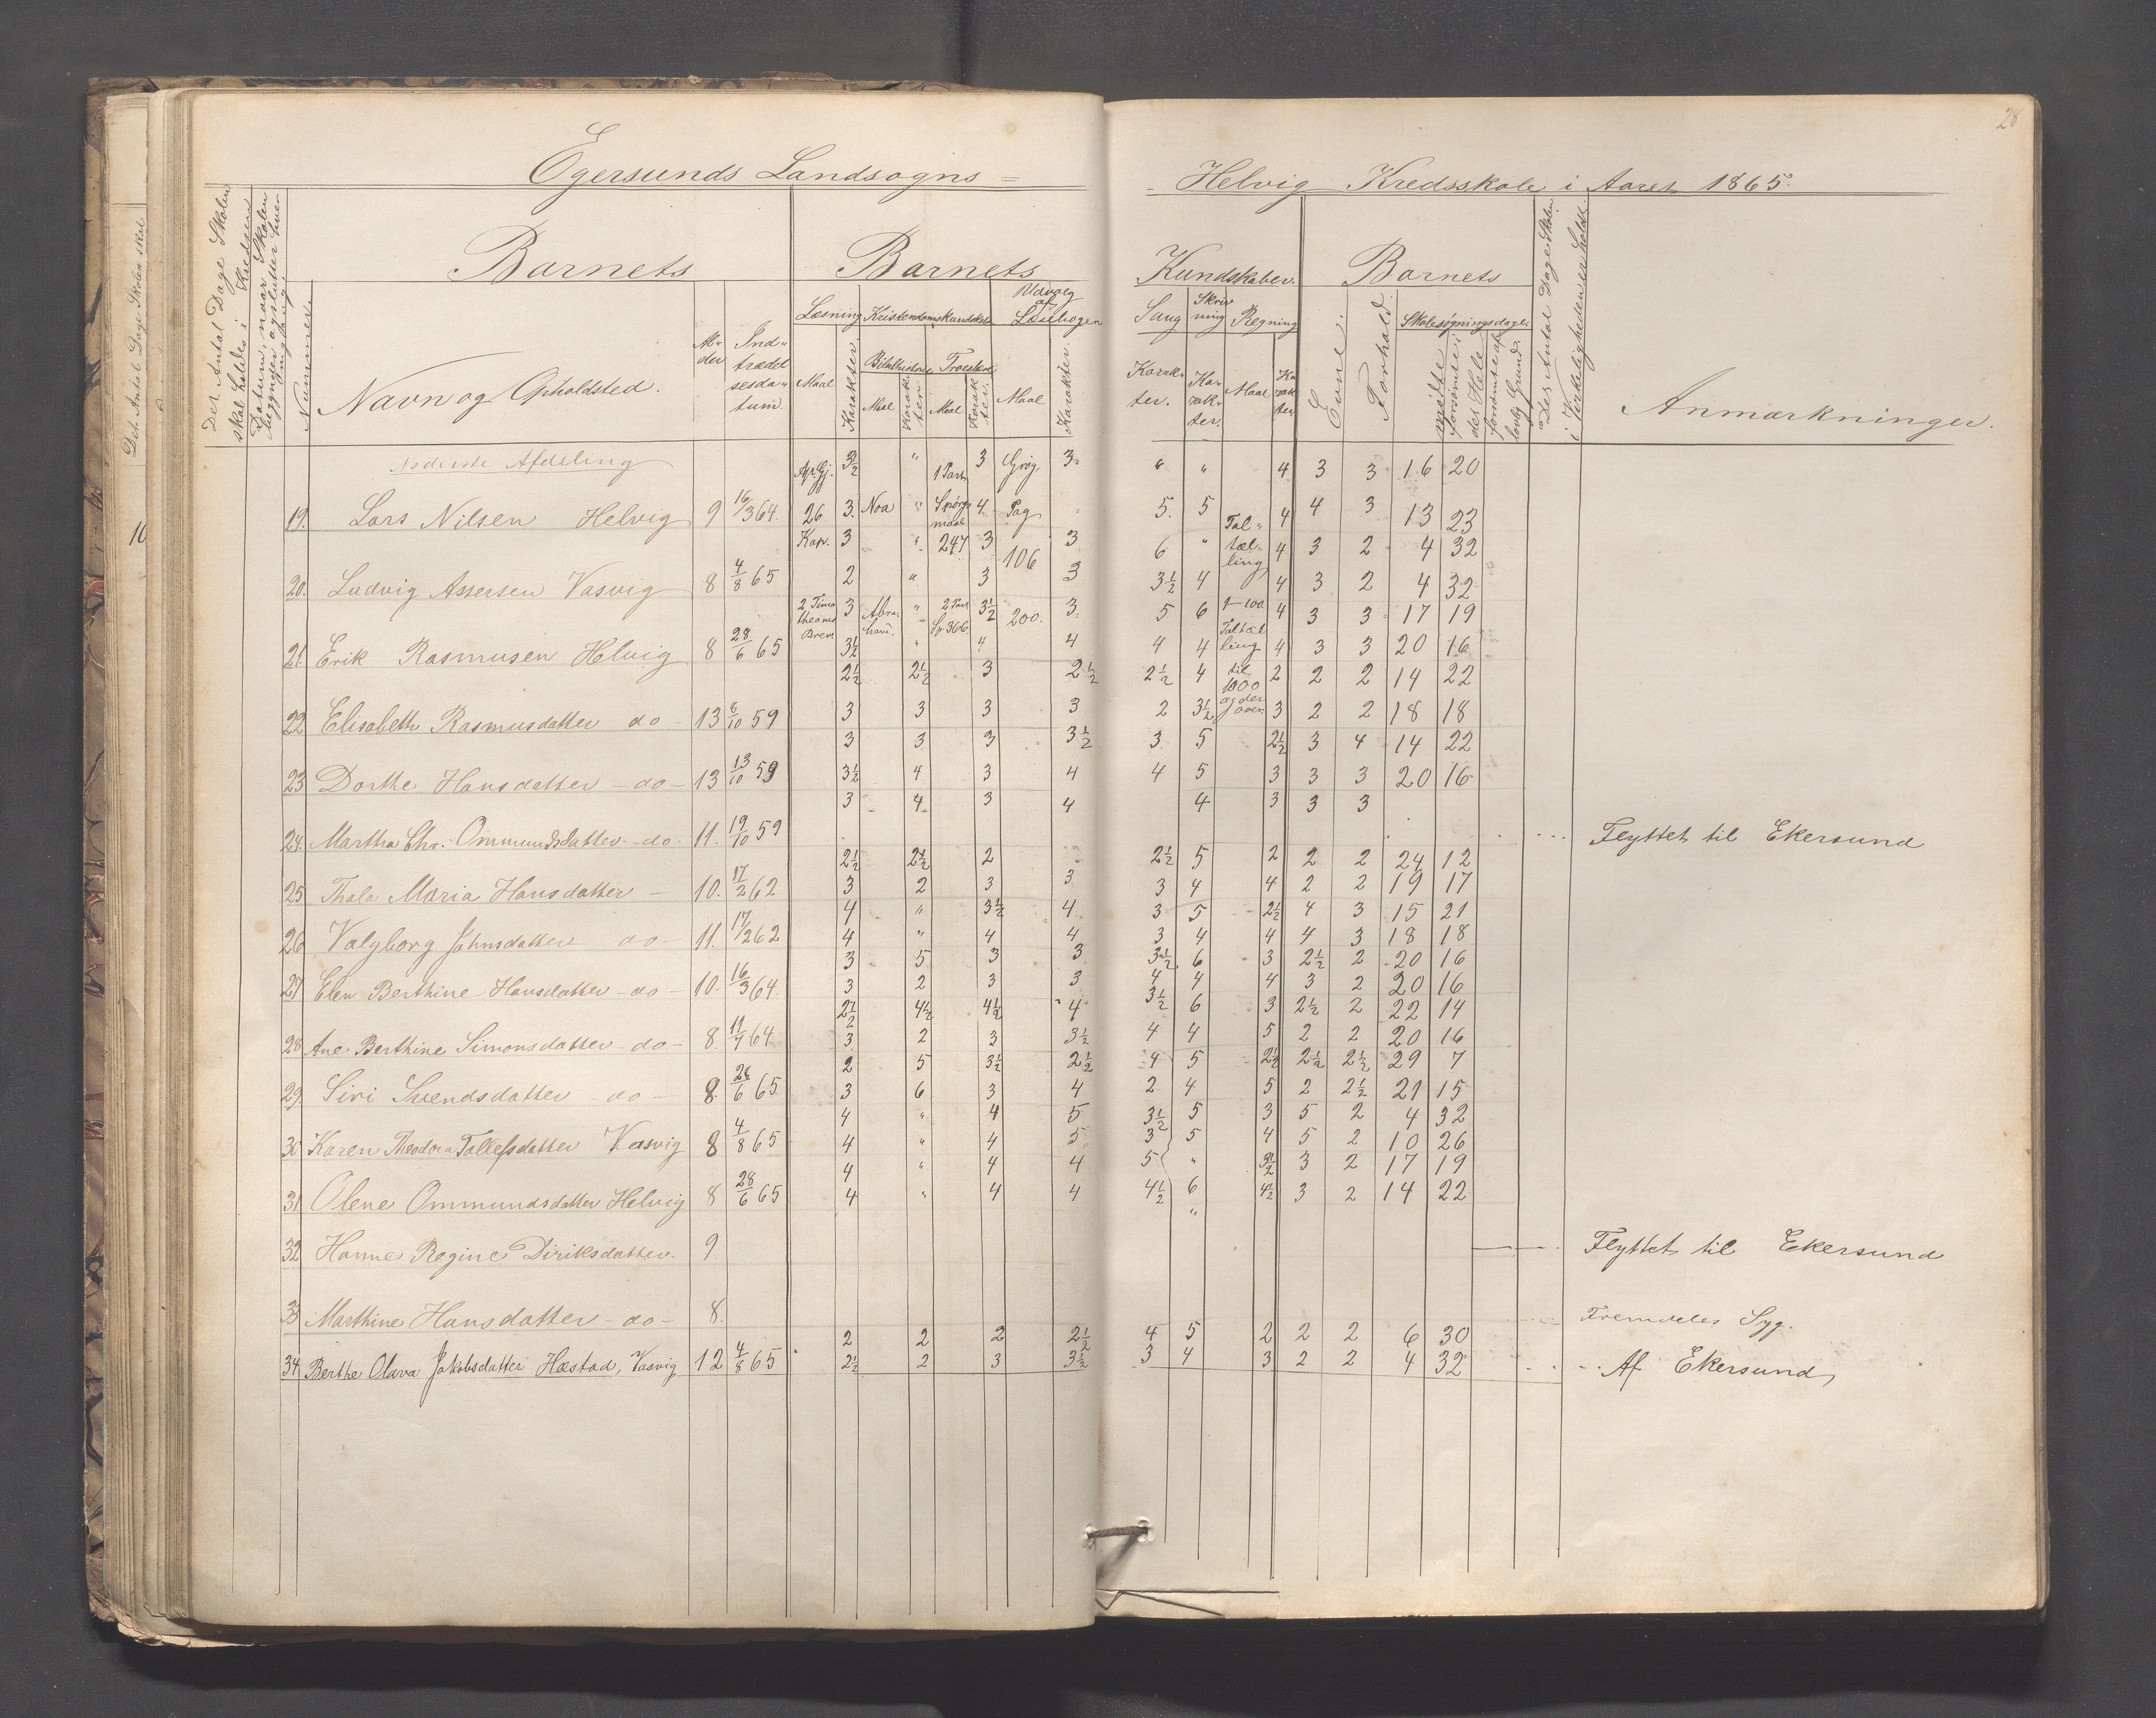 28
Egersunds Landsogns =
Helvig Kredsskole i Aaret 1865.
Det Antal Dage Skolen skal
10
Det Antal Dage Skolen
skal holdes i Kredsen
Datum, naar Skolen
begynder og slutter hver
Nummer.
Barnets
Navn og Opholdsted.
Al-
der
Ind-
trædel
sesda-
tum.
Barnets
Læsning
Kristendomskundskab
Udvalg
af
Læsebogen
Maal
Karakter.
Bibelhistorie
Troeslære
Maal
Karak
ter
Maal
Karak
ter.
Maal
Karakter.
Kundskaber.
Sang
Skriv
ning
Regning
Karak-
ter.
Ka-
rak-
ter.
Maal
Ka
rak
ter.
Barnets
Evne.
Forhold.
Skolesøgningsdage
mødte
forsømte i
det Hele
forsømte af
lovlig Grund
Det Antal Dage Skolen
i Virkeligheden er holdt.
Anmærkninger.
Nederste Afdeling
Ap. Gj. 3½ " 1 Part 3 3. " " 4 3 3 16 20
19. Lars Nilsen Helvig 9 16/3 64. 26 3. Noa " Spørgs
maal 4. Pag 5. 5 4 4 3 13 23
Kap. 3 " 247 3 106 3 6 " Tal-
tæl-
ling 4 3 2 4 32
20. Ludvig Assersen Vasvig 8 4/8 65 2 " 3 3 3½ 4 4 3 2 4 32
2 Timo
theous
Brev 3 Abra-
ham. " 2 Part
Sp. 366 3½ 200. 3. 5 6 1-100 4 3 3 17 19
21. Erik Rasmusen Helvig 8 28/6 65 3½ " 4 4 4 4 Taltæl
ling 4 3 3 20 16
2½ 2½ 3 2½ 2½ 4 til
1000
og der
over. 2 2 2 14 22
22 Elisabeth Rasmusdatter do - 13 6/10 59 3 3 3 3 2 3½ 3 2 2 18 18
3 3 3 3½ 3. 5 2½ 3 4 14 22
23 Dorthe Hansdatter - do - 13 13/10 59 3½ 4 3 4 4 5 3 3 3 20 16
3 4 3 4 4 3 3 3
24. Martha Chr. Ommundsdatter - do - 11. 19/10 59 Flyttet til Ekersund
2½ 2½ 2 2½ 5 2 2 2 24 12
25 Thala Maria Hansdatter - 10. 17/2 62 3 2 3 3 3 4 4 2 2 19 17
4 " 3½ 4 3 5 2½ 4 3 15 21
26 Valgborg Johnsdatter do - 11. 17/2 62 4 " 4 4 3 4 4 4 3 18 18
3 5 3 3 3½ 6 3 2½ 2 20 16
27 Elen Berthine Hansdatter - do - 10. 16/3 64. 3 2 3 3 4 4 4 3 2 20 16
2½ 4½ 4½ 4 3½ 6 3 2½ 2 22 14
28 Ane Berthine Simonsdatter - do - 8. 11/7 64 3 2 3 3½ 4 4 5 2 2 20 16
2 5 3½ 2½ 4 5 2½ 2½ 2½ 29 7
29 Siri Svendsdatter - do - 8. 28/6 65 3 6 3 4 2 4 5 2 2½ 21 15
4 " 4 5 3½ 5 3 5 2 4 32
30 Karen Theodora Tollefsdatter Vasvig 8 4/8 65 4 " 4 5 3 5 4 5 2 10 26
4 " 4 4 5 " 3½ 3 2 17 19
31 Olene Ommundsdatter Helvig 8 28/6 65 4 " 4 4 4½ 6 4½ 3 2 14 22
32 Hanne Regine Diriksdatter. 9. " Flyttet til Ekersund
33 Marthine Hansdatter - do - 8. Fremdeles Syg.
2 2 2 2½ 4 5 2 2 2 6 30
34 Berthe Olava Jakobsdatter Hæstad, Vasvig 12 4/8 65 2½ 2 3 3½ 3 4 3 2 2 4 32 Af Ekersund,